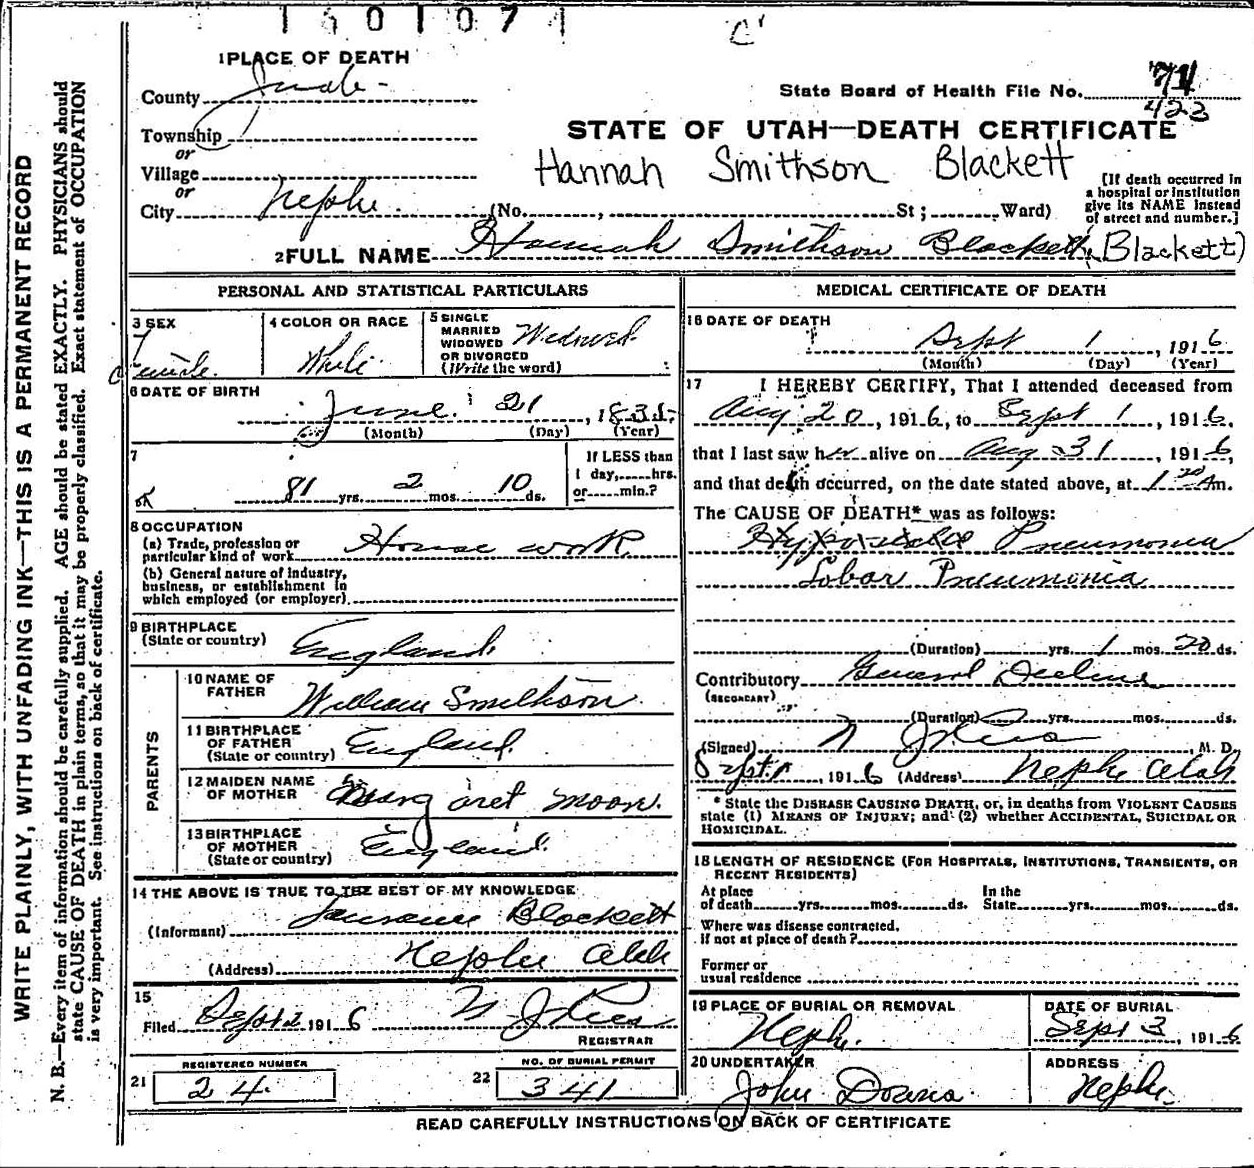 1601071
C'
1 PLACE OF DEATH
County Juab
State Board of Health File No. 71
423
Township
or
Village
or
City Nephi (No. , St ; Ward)
STATE OF UTAH—DEATH CERTIFICATE
Hannah Smithson Blackett
[If death occurred in
a hospital or institution
give its NAME instead
of street and number.]
2 FULL NAME Hannah Smithson Blackett (Blackett)
PERSONAL AND STATISTICAL PARTICULARS
3 SEX
Female
4 COLOR OR RACE
White
5 SINGLE
MARRIED
WIDOWED
OR DIVORCED
(Write the word)
Widowed
6 DATE OF BIRTH
June 21, 1835
(Month) (Day) (Year)
7
81 yrs. 2 mos. 10 ds.
If LESS than
1 day, hrs.
or min.?
8 OCCUPATION
(a) Trade, profession or
particular kind of work House work
(b) General nature of industry,
business, or establishment in
which employed (or employer)
9 BIRTHPLACE
(State or country) England
PARENTS
10 NAME OF
FATHER William Smithson
11 BIRTHPLACE
OF FATHER
(State or country) England
12 MAIDEN NAME
OF MOTHER Margaret Moon
13 BIRTHPLACE
OF MOTHER
(State or country) England
14 THE ABOVE IS TRUE TO THE BEST OF MY KNOWLEDGE
(Informant) Blackett
(Address) Nephi Utah
15
Filed Sept 2 1916
REGISTRAR
REGISTERED NUMBER
21 24
NO. OF BURIAL PERMIT
22 341
MEDICAL CERTIFICATE OF DEATH
16 DATE OF DEATH
Sept 1, 1916
(Month) (Day) (Year)
17 I HEREBY CERTIFY, That I attended deceased from
Aug 20, 1916, to Sept 1, 1916,
that I last saw her alive on Aug 31, 1916,
and that death occurred, on the date stated above, at 1 20 Am.
The CAUSE OF DEATH* was as follows:
Hypostatic Pneumonia
Lobar Pneumonia
(Duration) yrs. 1 mos. 20 ds.
Contributory General Decline
(SECONDARY)
(Duration) yrs. mos. ds.
(Signed) , M. D.
Sept 1, 1916 (Address) Nephi Utah
* State the DISEASE CAUSING DEATH, or, in deaths from VIOLENT CAUSES
state (1) MEANS OF INJURY; and (2) whether ACCIDENTAL, SUICIDAL OR
HOMICIDAL.
18 LENGTH OF RESIDENCE (FOR HOSPITALS, INSTITUTIONS, TRANSIENTS, OR
RECENT RESIDENTS)
At place
of death yrs. mos. ds.
In the
State yrs. mos. ds.
Where was disease contracted,
if not at place of death ?
Former or
usual residence
19 PLACE OF BURIAL OR REMOVAL
Nephi
DATE OF BURIAL
Sept 3, 1916
20 UNDERTAKER
John
ADDRESS
Nephi
READ CAREFULLY INSTRUCTIONS ON BACK OF CERTIFICATE
WRITE PLAINLY, WITH UNFADING INK—THIS IS A PERMANENT RECORD
N. B.—Every item of information should be carefully supplied. AGE should be stated EXACTLY. PHYSICIANS should
state CAUSE OF DEATH in plain terms, so that it may be properly classified. Exact statement of OCCUPATION
is very important. See instructions on back of certificate.